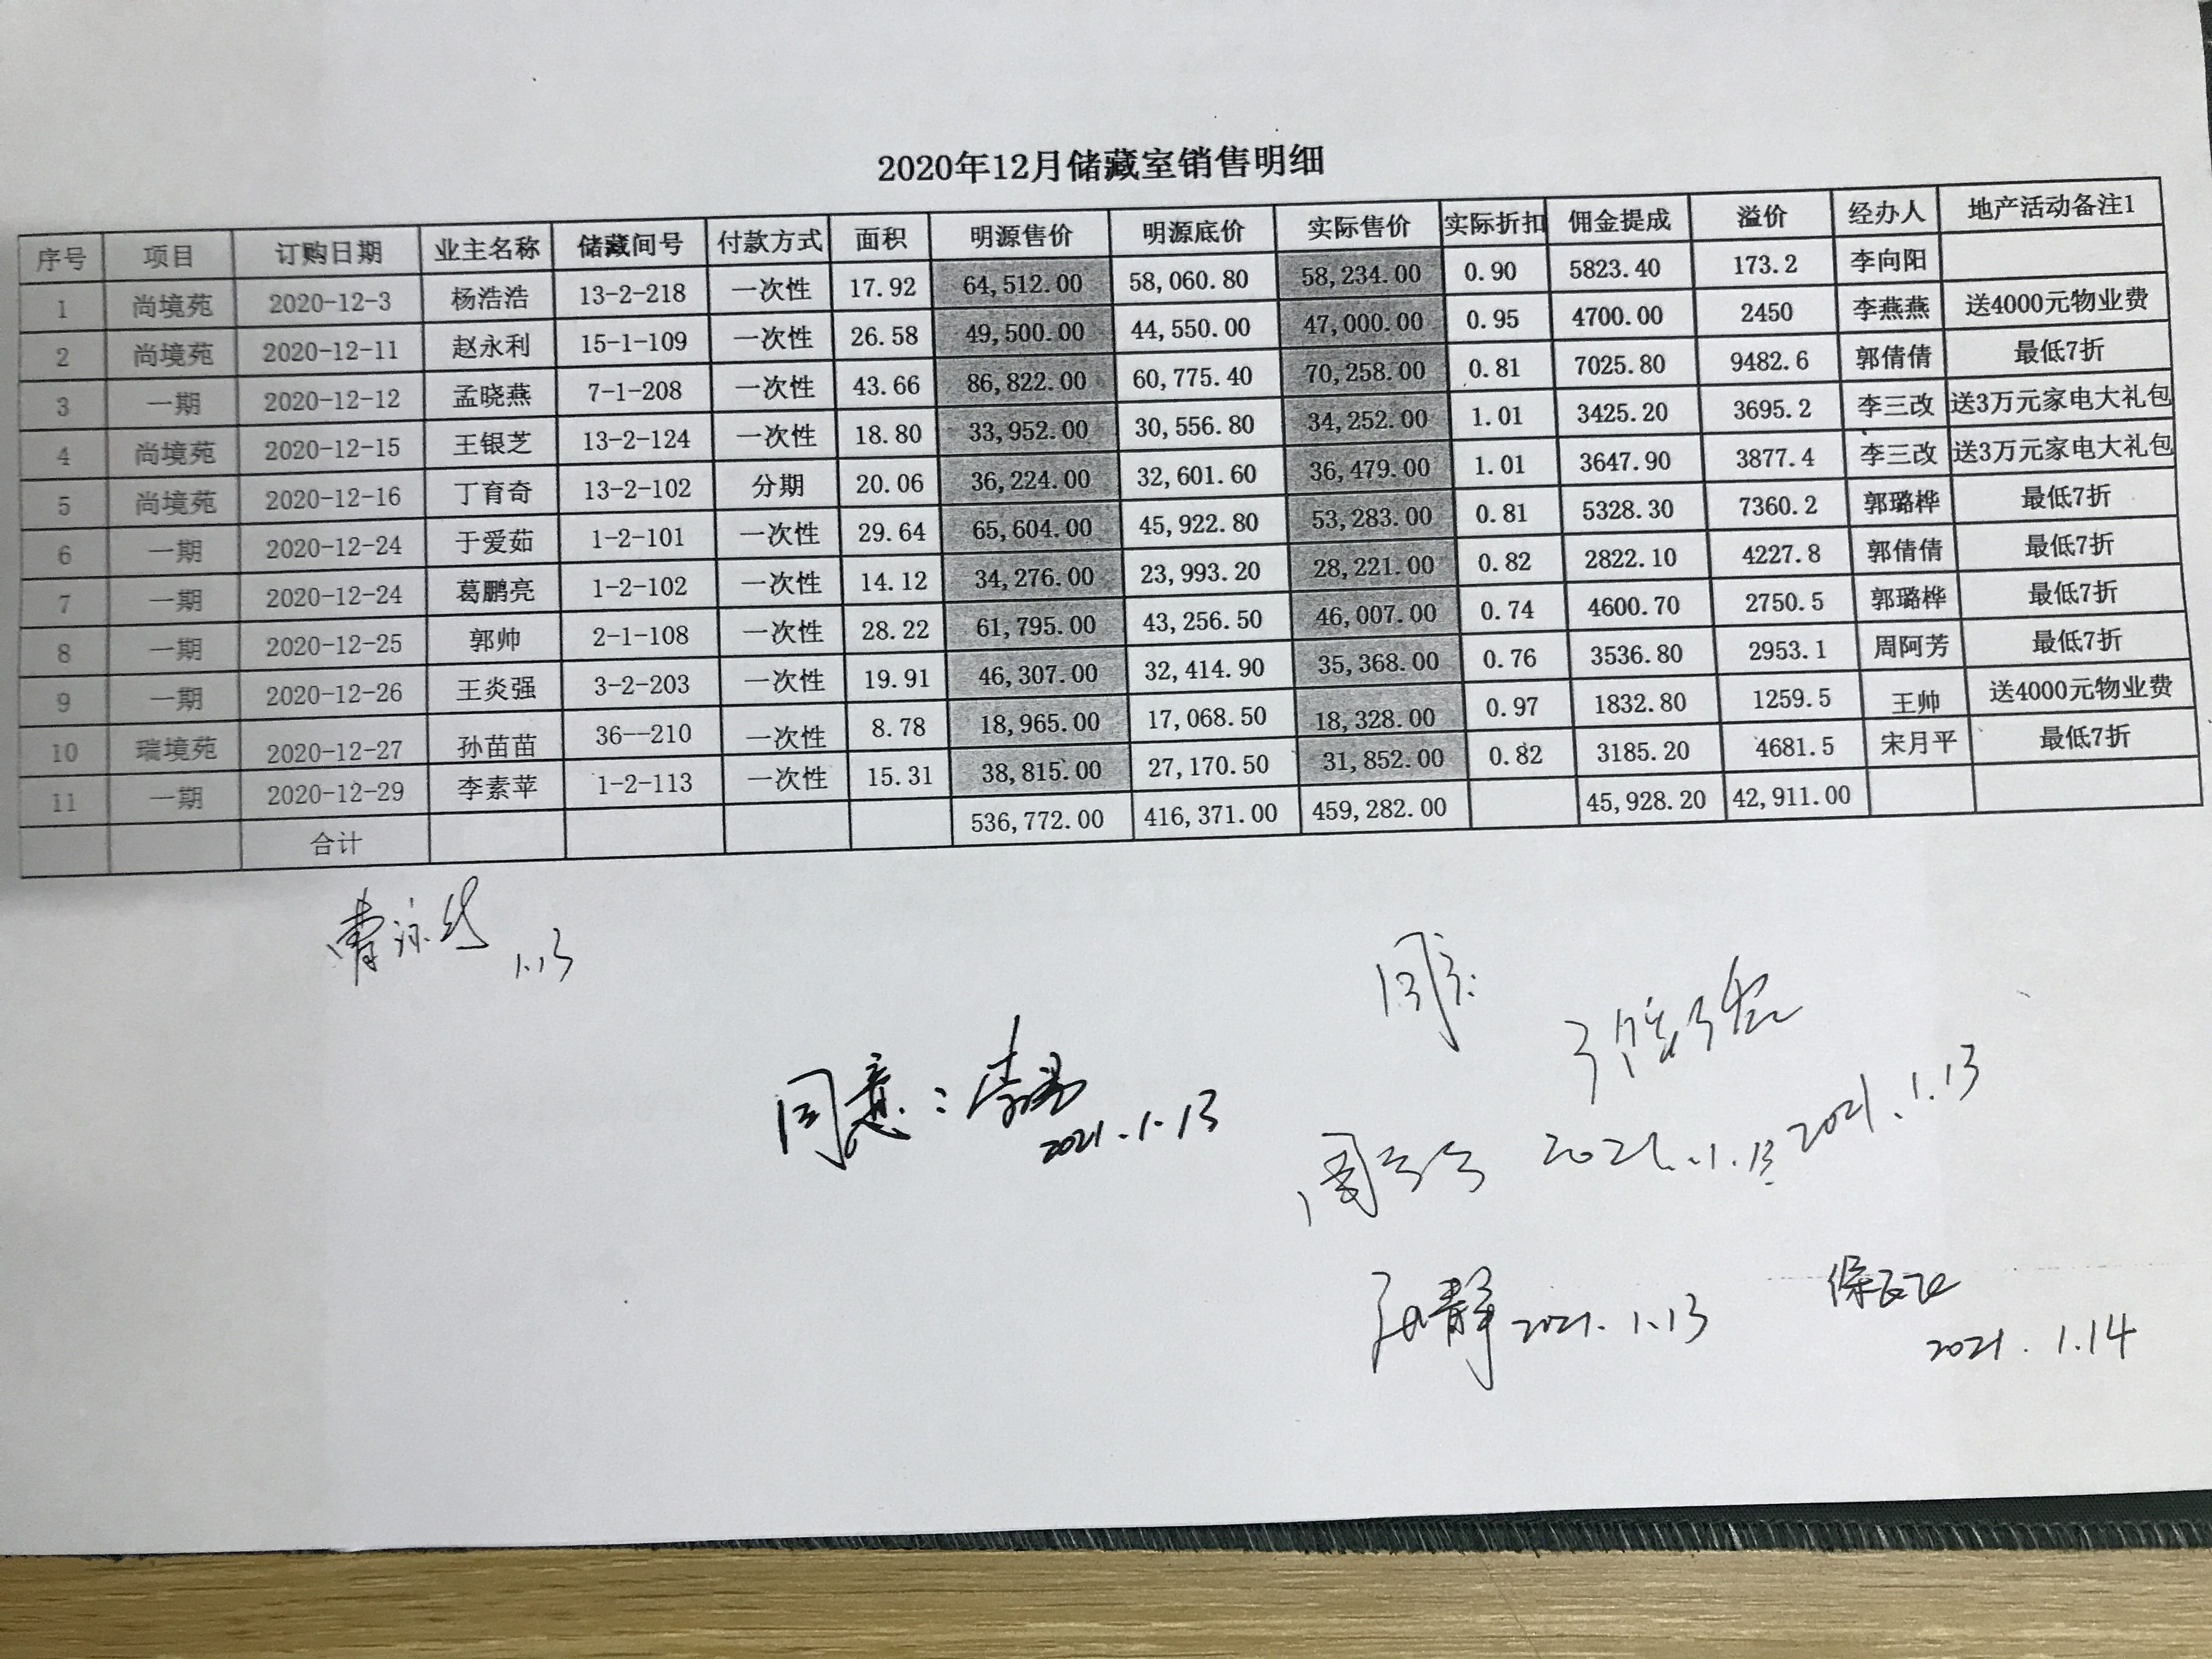 2020年12月储藏室销售明细
序号 项目 订购日期 业主名称 储藏间号 付款方式 面积 明源售价 明源底价 实际售价 实际折扣 佣金提成 溢价 经办人 地产活动备注1
1 尚境苑 2020-12-3 杨浩浩 13-2-218 一次性 17.92 64,512.00 58,060.80 58,234.00 0.90 5823.40 173.2 李向阳
2 尚境苑 2020-12-11 赵永利 15-1-109 一次性 26.58 49,500.00 44,550.00 47,000.00 0.95 4700.00 2450 李燕燕 送4000元物业费
3 一期 2020-12-12 孟晓燕 7-1-208 一次性 43.66 86,822.00 60,775.40 70,258.00 0.81 7025.80 9482.6 郭倩倩 最低7折
4 尚境苑 2020-12-15 王银芝 13-2-124 一次性 18.80 33,952.00 30,556.80 34,252.00 1.01 3425.20 3695.2 李三改 送3万元家电大礼包
5 尚境苑 2020-12-16 丁育奇 13-2-102 分期 20.06 36,224.00 32,601.60 36,479.00 1.01 3647.90 3877.4 李三改 送3万元家电大礼包
6 一期 2020-12-24 于爱茹 1-2-101 一次性 29.64 65,604.00 45,922.80 53,283.00 0.81 5328.30 7360.2 郭璐桦 最低7折
7 一期 2020-12-24 葛鹏亮 1-2-102 一次性 14.12 34,276.00 23,993.20 28,221.00 0.82 2822.10 4227.8 郭倩倩 最低7折
8 一期 2020-12-25 郭帅 2-1-108 一次性 28.22 61,795.00 43,256.50 46,007.00 0.74 4600.70 2750.5 郭璐桦 最低7折
9 一期 2020-12-26 王炎强 3-2-203 一次性 19.91 46,307.00 32,414.90 35,368.00 0.76 3536.80 2953.1 周阿芳 最低7折
10 瑞境苑 2020-12-27 孙苗苗 36--210 一次性 8.78 18,965.00 17,068.50 18,328.00 0.97 1832.80 1259.5 王帅 送4000元物业费
11 一期 2020-12-29 李素苹 1-2-113 一次性 15.31 38,815.00 27,170.50 31,852.00 0.82 3185.20 4681.5 宋月平 最低7折
合计 536,772.00 416,371.00 459,282.00 45,928.20 42,911.00
1.13
同意
同意：
2021.1.13
2021.1.13
2021.1.13
静 2021.1.13
2021.1.14